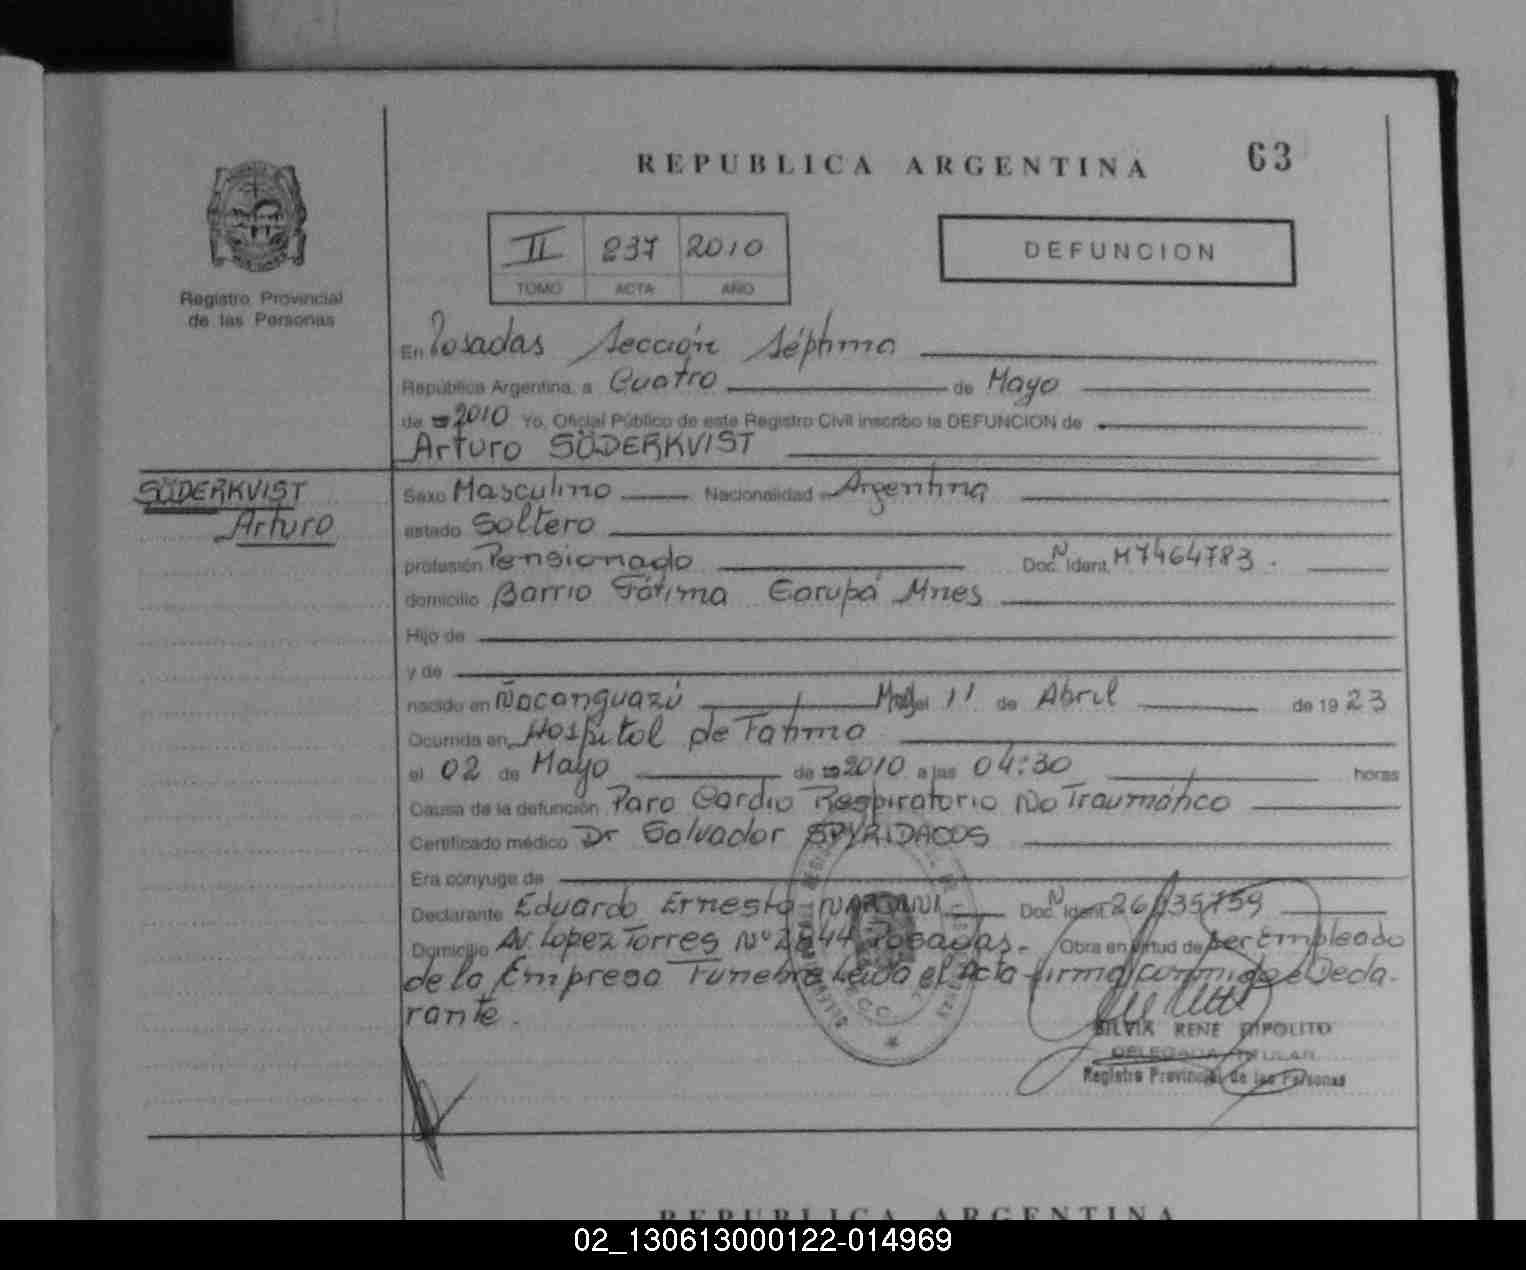 REPUBLICA ARGENTINA 63
II 237 2010
TOMO ACTA AÑO
DEFUNCION
Registro Provincial
de las Personas
En Posadas Sección Séptima
República Argentina, a Cuatro de Mayo
de 2010 Yo, Oficial Público de este Registro Civil inscribo la DEFUNCION de
Arturo SÖDERKVIST
SÖDERKVIST
Arturo
Sexo Masculino Nacionalidad Argentina
estado Soltero
profesión Pensionado Doc. N Ident. M7464783.
domicilio Barrio Fátima Garupá Mnes
Hijo de
y de
nacido en Ñacanguazú el 11 de Abril de 1923
Ocurrida en Hospital de Fatima
el 02 de Mayo de 2010 a las 04:30 horas
Causa de la defunción Paro Cardio Respiratorio No Traumático
Certificado médico Dr Salvador SPYRIDACOS
Era cónyuge de
Declarante Eduardo Ernesto Doc. N Ident.
Domicilio Av. Lopez Torres Nº 2844 Posadas. Obra en virtud de ser Empleado
de la Empresa Funebre Leida el Acta firma conmigo e Decla-
rante.
SILVIA RENE HIPOLITO
DELEGADA TITULAR
Registro Provincial de las Personas
REPUBLICA ARGENTINA
02_130613000122-014969